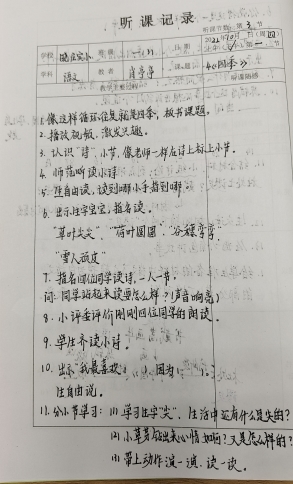 听课记录
听课节数: 第 3 节
学校 实小 班级 一(1) 日期 2021年10月 日(周四)
第一节
学科 语文 教者 肖亭亭 课题 4《四季》
教学主要过程 听课随感
1. 像这样循环往复就是四季,板书课题。
2. 播放视频,激发兴趣。
3. 认识“诗”,小节,像老师一样在诗上标上小节。
4. 师范听读小诗
5. 生自由读,读到哪小手指到哪。
6. 出示生字宝宝,指名读。
“草叶尖尖”、“荷叶圆圆”、谷穗弯弯、
“雪人顽皮”
7. 指名四位同学读诗,一人一节。
问: 同学站起来读要怎么样?(声音响亮)
8. 小评委评价刚刚四位同学的朗读。
9. 学生齐读小诗。
10. 出示“我最喜欢: 因为: 。
生自由说。
11. 分小节学习: (1) 学习生字“尖”、生活中还有什么是尖的?
(2) 小草芽钻出来心情如何?又是怎么样的?
(3) 带上动作演一演、读一读。